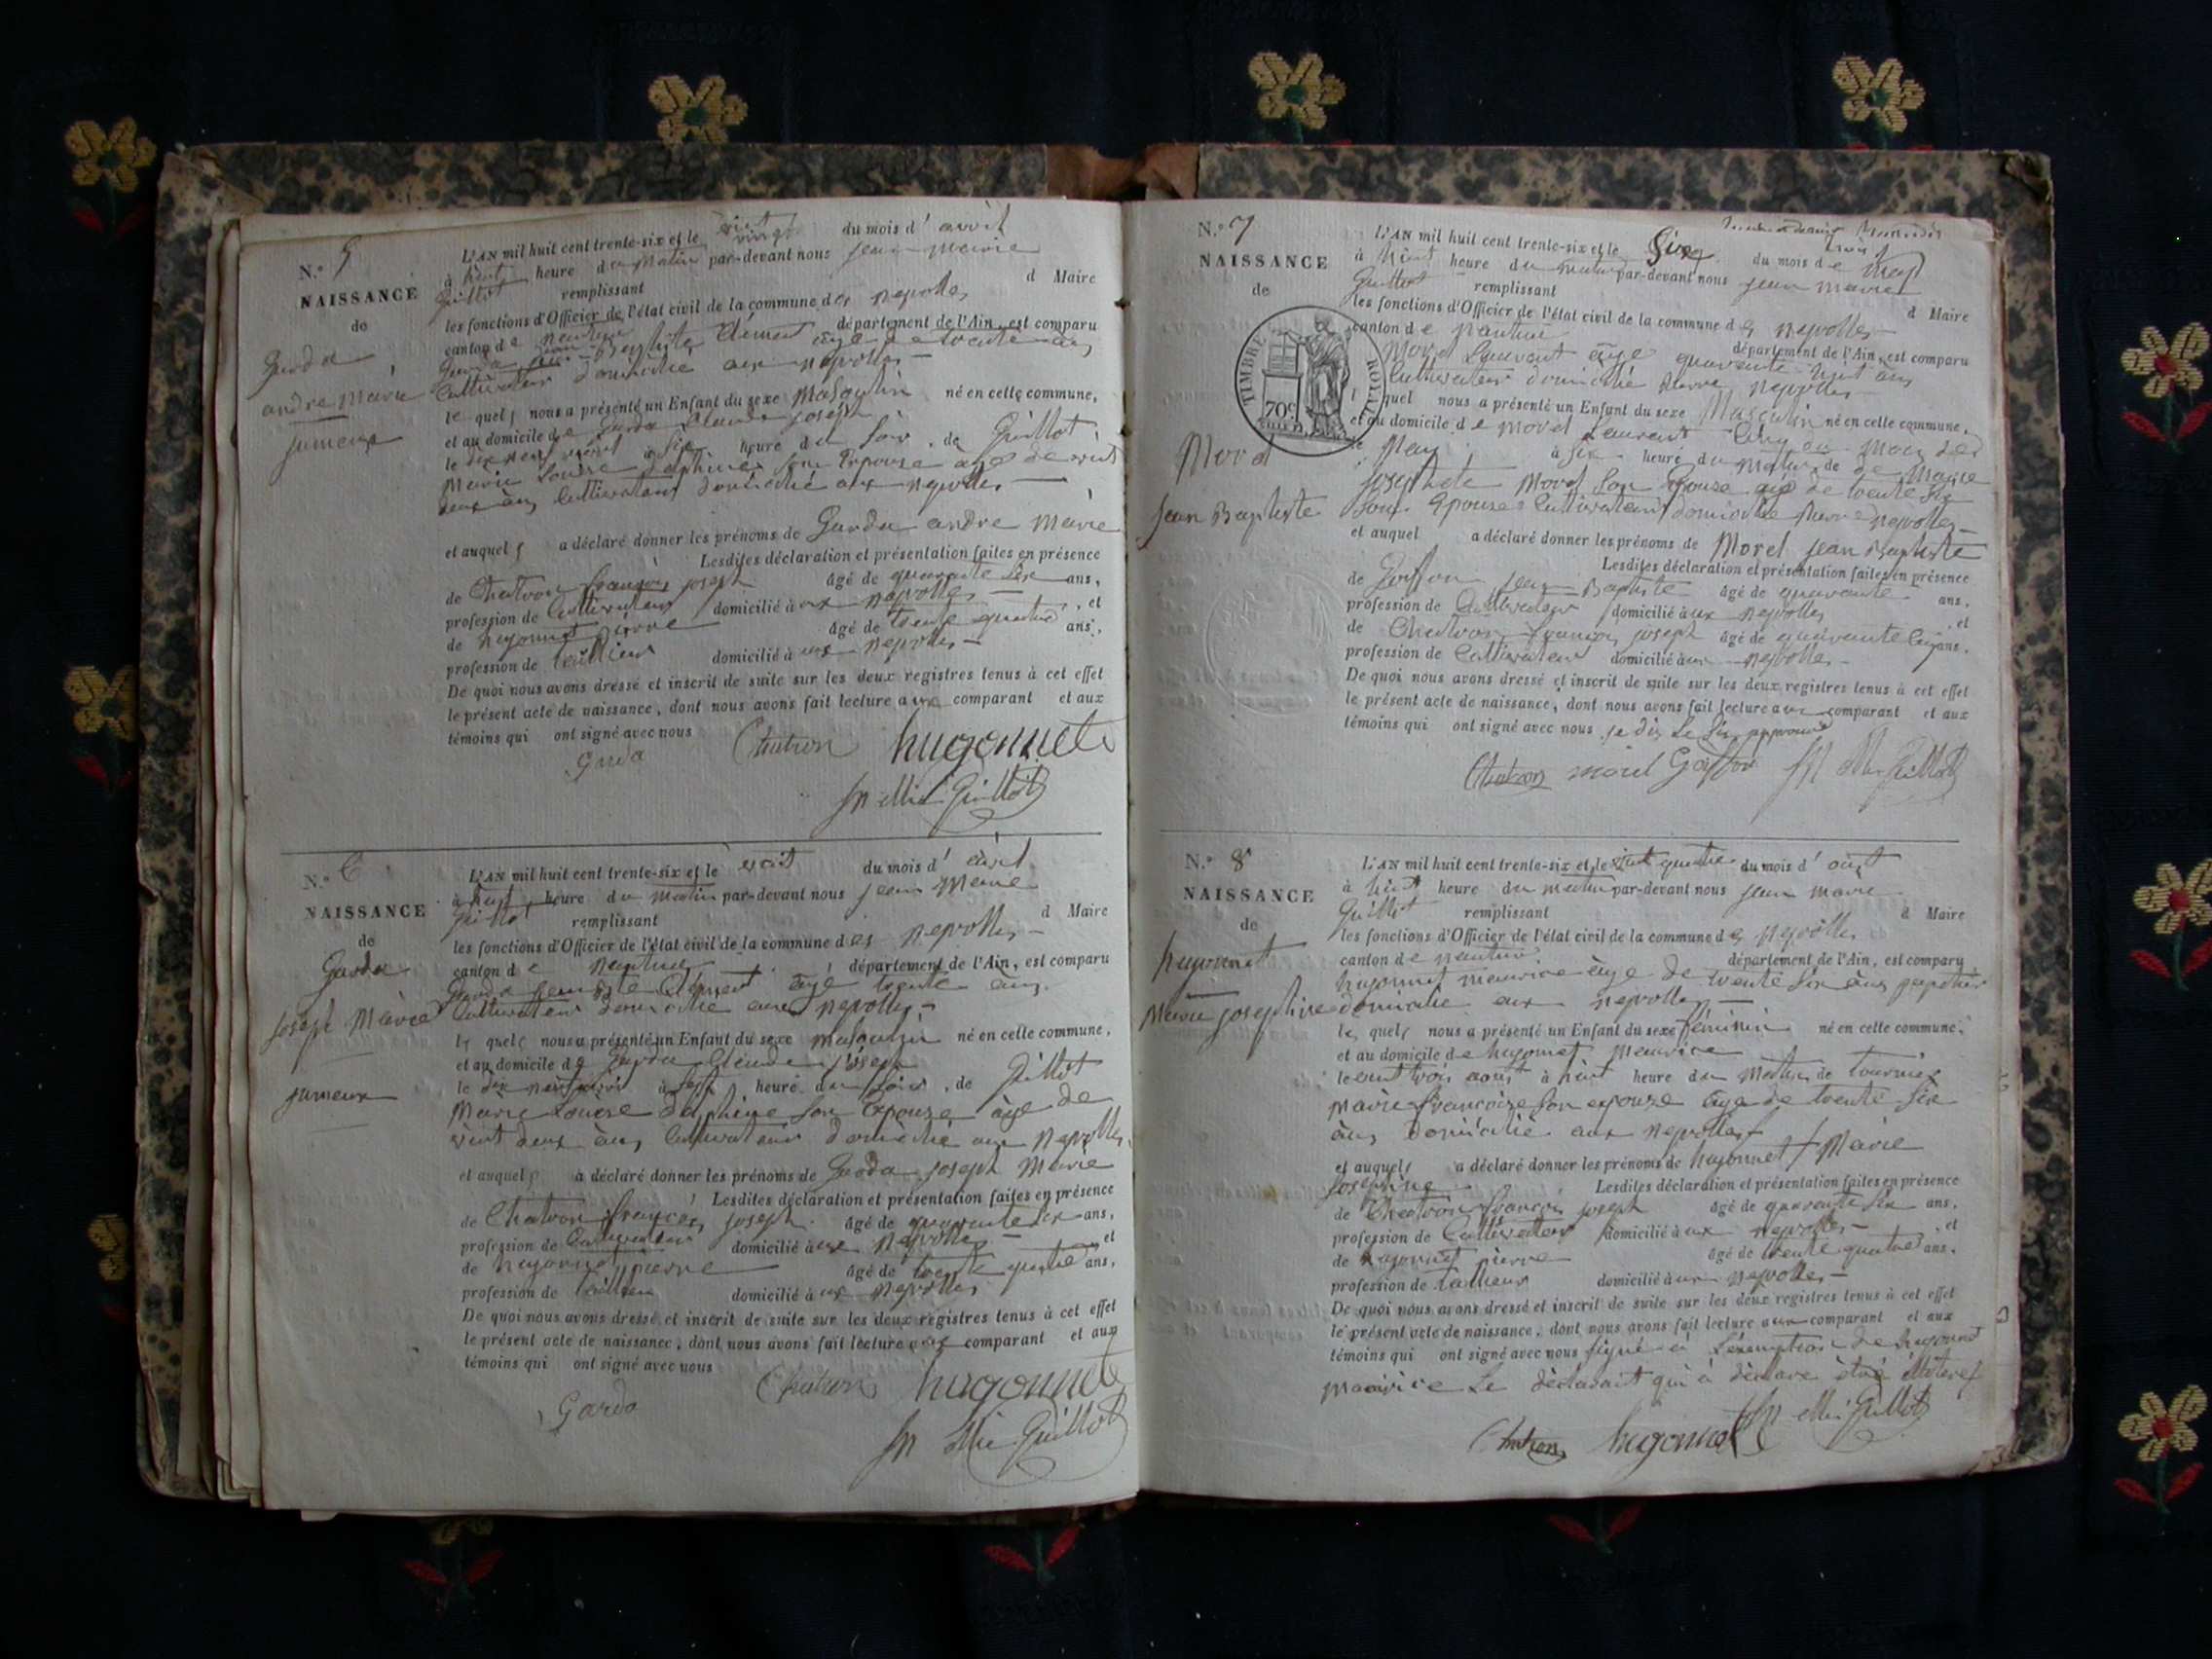 N.º 5
NAISSANCE
de
Garda
andre Marie
jumeux
L'AN mil huit cent trente-six et le vingt du mois d' avril
à huit heure du matin par-devant nous jean marie
Guillot remplissant d Maire
les fonctions d'Officier de l'état civil de la commune des nepolles
canton de nantua département de l'Ain, est comparu
Garda Clément âgé de trente ans
Cultivateur domicilié aux nepolles
le quel nous a présenté un Enfant du sexe Masqulin né en cette commune,
et au domicile de Garda Claude joseph
le dix neuf avril à six heure du soir, de Guillot
Marie Louise Delphine son Epouse âgé de vint
deux ans Cultivateur domicilié aux nepolles
et auquel a déclaré donner les prénoms de Garda andre Marie
Lesdites déclaration et présentation faites en présence
de Chatron françois joseph âgé de quarante six ans,
profession de Cultivateur domicilié à aux nepolles, et
de hugonnet pierre âgé de trente quatre ans,
profession de tallieur domicilié à aux nepolles
De quoi nous avons dressé et inscrit de suite sur les deux registres tenus à cet effet
le présent acte de naissance, dont nous avons fait lecture aux comparant et aux
témoins qui ont signé avec nous
Garda Chatron hugonnet
Guillot
N.º 6
NAISSANCE
de
Garda
joseph Marie
jumeux
L'AN mil huit cent trente-six et le vint du mois d' avril
à huit heure du matin par-devant nous jean Marie
Guillot remplissant d Maire
les fonctions d'Officier de l'état civil de la commune des nepolles
canton de nantua département de l'Ain, est comparu
Garda Clément âgé trente ans
Cultivateur domicilié aux nepolles
le quel nous a présenté un Enfant du sexe masqulin né en cette commune,
et au domicile de Garda Claude joseph
le dix neuf avril à sept heure du soir, de Guillot
Marie Louise Delphine son Epouse âgé de
vint deux ans Cultivateur domicilié aux nepolles
et auquel a déclaré donner les prénoms de Garda joseph Marie
Lesdites déclaration et présentation faites en présence
de Chatron françois joseph âgé de quarante six ans,
profession de Cultivateur domicilié à aux nepolles et
de hugonnet pierre âgé de trente quatre ans,
profession de tallieur domicilié à aux nepolles
De quoi nous avons dressé et inscrit de suite sur les deux registres tenus à cet effet
le présent acte de naissance, dont nous avons fait lecture aux comparant et aux
témoins qui ont signé avec nous
Garda Chatron hugonnet
Guillot
N.º 7
NAISSANCE
de
TIMBRE ROYAL
70c
Morel
jean Baptiste
L'AN mil huit cent trente-six et le Six du mois de May
à huit heure du matin par-devant nous jean marie
Guillot remplissant d Maire
les fonctions d'Officier de l'état civil de la commune des nepolles
canton de nantua département de l'Ain, est comparu
Morel Laurent âgé quarante huit ans
Cultivateur domicilié nepolles
quel nous a présenté un Enfant du sexe Masculin né en cette commune,
et au domicile de morel Laurent
May à six heure du matin, de Marie
josephete Morel son Epouse âgé de trente six
Epouse Cultivateur domicilié nepolles
et auquel a déclaré donner les prénoms de Morel jean Baptiste
Lesdites déclaration et présentation faites en présence
de Goiffon jean Baptiste âgé de quarante ans,
profession de Cultivateur domicilié à aux nepolles et
de Chatron françois joseph âgé de quarante ans,
profession de Cultivateur domicilié à aux nepolles
De quoi nous avons dressé et inscrit de suite sur les deux registres tenus à cet effet
le présent acte de naissance, dont nous avons fait lecture aux comparant et aux
témoins qui ont signé avec nous je dis le six approuvé
Chatron morel Goiffon Guillot
N.º 8
NAISSANCE
de
hugonnet
Marie josephine
L'AN mil huit cent trente-six et le vint quatre du mois d' août
à huit heure du matin par-devant nous jean marie
Guillot remplissant d Maire
les fonctions d'Officier de l'état civil de la commune des nepolles
canton de nantua département de l'Ain, est comparu
hugonnet maurice âgé de trente six ans
domicilié aux nepolles
le quel nous a présenté un Enfant du sexe féminin né en cette commune,
et au domicile de hugonnet Maurice
le vint trois août à huit heure du matin, de tournier
marie françoise son epouze âgé de trente six
ans domicilié aux nepolles
et auquel a déclaré donner les prénoms de hugonnet Marie
josephine Lesdites déclaration et présentation faites en présence
de Chatron françois joseph âgé de quarante six ans,
profession de Cultivateur domicilié à aux nepolles, et
de hugonnet pierre âgé de trente quatre ans,
profession de tallieur domicilié à aux nepolles
De quoi nous avons dressé et inscrit de suite sur les deux registres tenus à cet effet
le présent acte de naissance, dont nous avons fait lecture aux comparant et aux
témoins qui ont signé avec nous signé à L'exemption de hugonnet
maurice Le déclarant qui à déclaré être
Chatron hugonnet Guillot